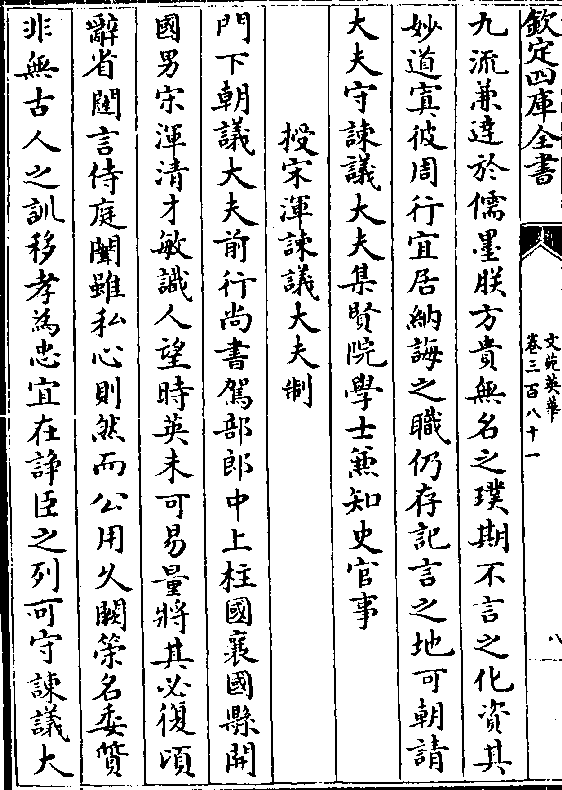 欽定四庫全書
文苑英華
卷三百八十一
八
九流兼達於儒墨朕方貴無名之璞期不言之化資其
妙道寘彼周行宜居納誨之職仍存記言之地可朝請
大夫守諫議大夫集賢院學士兼知史官事
授宋渾諫議大夫制
門下朝議大夫前行尚書駕部郎中上柱國襄國縣開
國男宋渾清才敏識人望時英未可易量將其必復頃
辭省闥言侍庭闈雖私心則然而公用久闕策名委質
非無古人之訓移孝為忠宜在諍臣之列可守諫議大